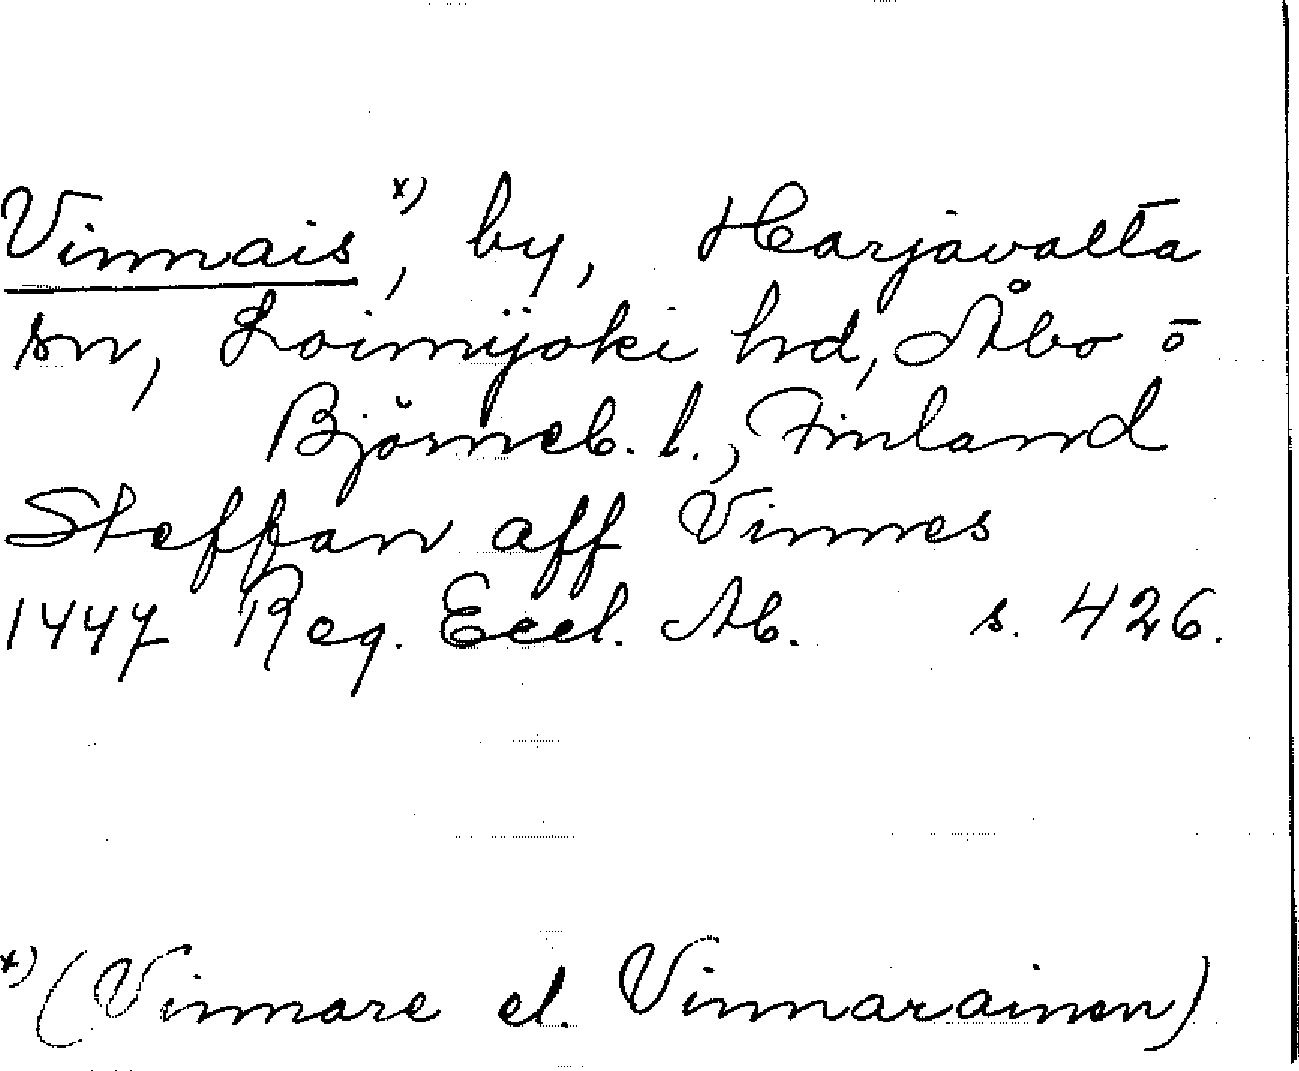 Vinnais x), by, Harjavalta
sn, Loimijoki hd, Åbo o
Björneb. l., Finland
Steffan aff Vinnes
1447 Reg. Eccl. Ab. s. 426.
x) (Vinnare el. Vinnarainen)